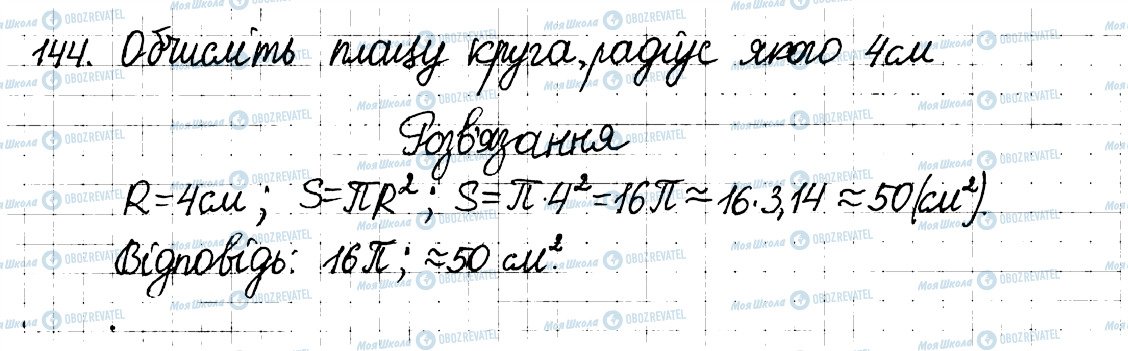 144. Обчисліть площу круга, радіус якого 4см
Розв'язання
R=4см; S=πR²; S=π·4²=16π≈16·3,14≈50(см²).
Відповідь: 16π; ≈50 см².